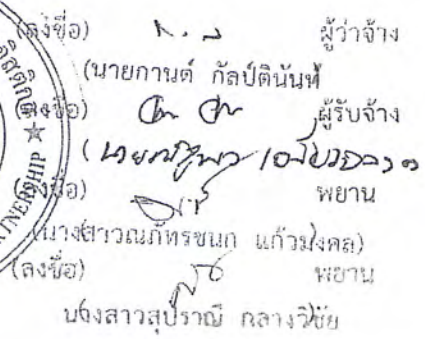 (ลงชื่อ) ผู้ว่าจ้าง
(นายกานต์ กัลป์ตินันท์
(ลงชื่อ) ผู้รับจ้าง
(นาย
(ลงชื่อ) พยาน
(นางสาวณภัทรชนก แก้วมงคล)
(ลงชื่อ) พยาน
นางสาวสุปราณี กลางวิชัย